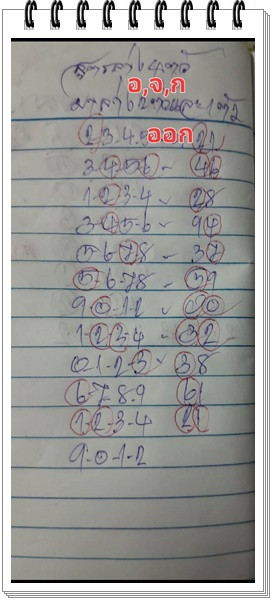 สูตรล่าง 4 ตัว
อ,จ,ก
ออก
2-3-4-5 21
3-4-5-6 - 46
1-2-3-4 - 28
3-4-5-6 - 94
5-6-7-8 - 37
5-6-7-8 - 59
9-0-1-2 - 00
1-2-3-4 - 32
0-1-2-3 - 38
6-7-8-9 61
1-2-3-4 21
9-0-1-2